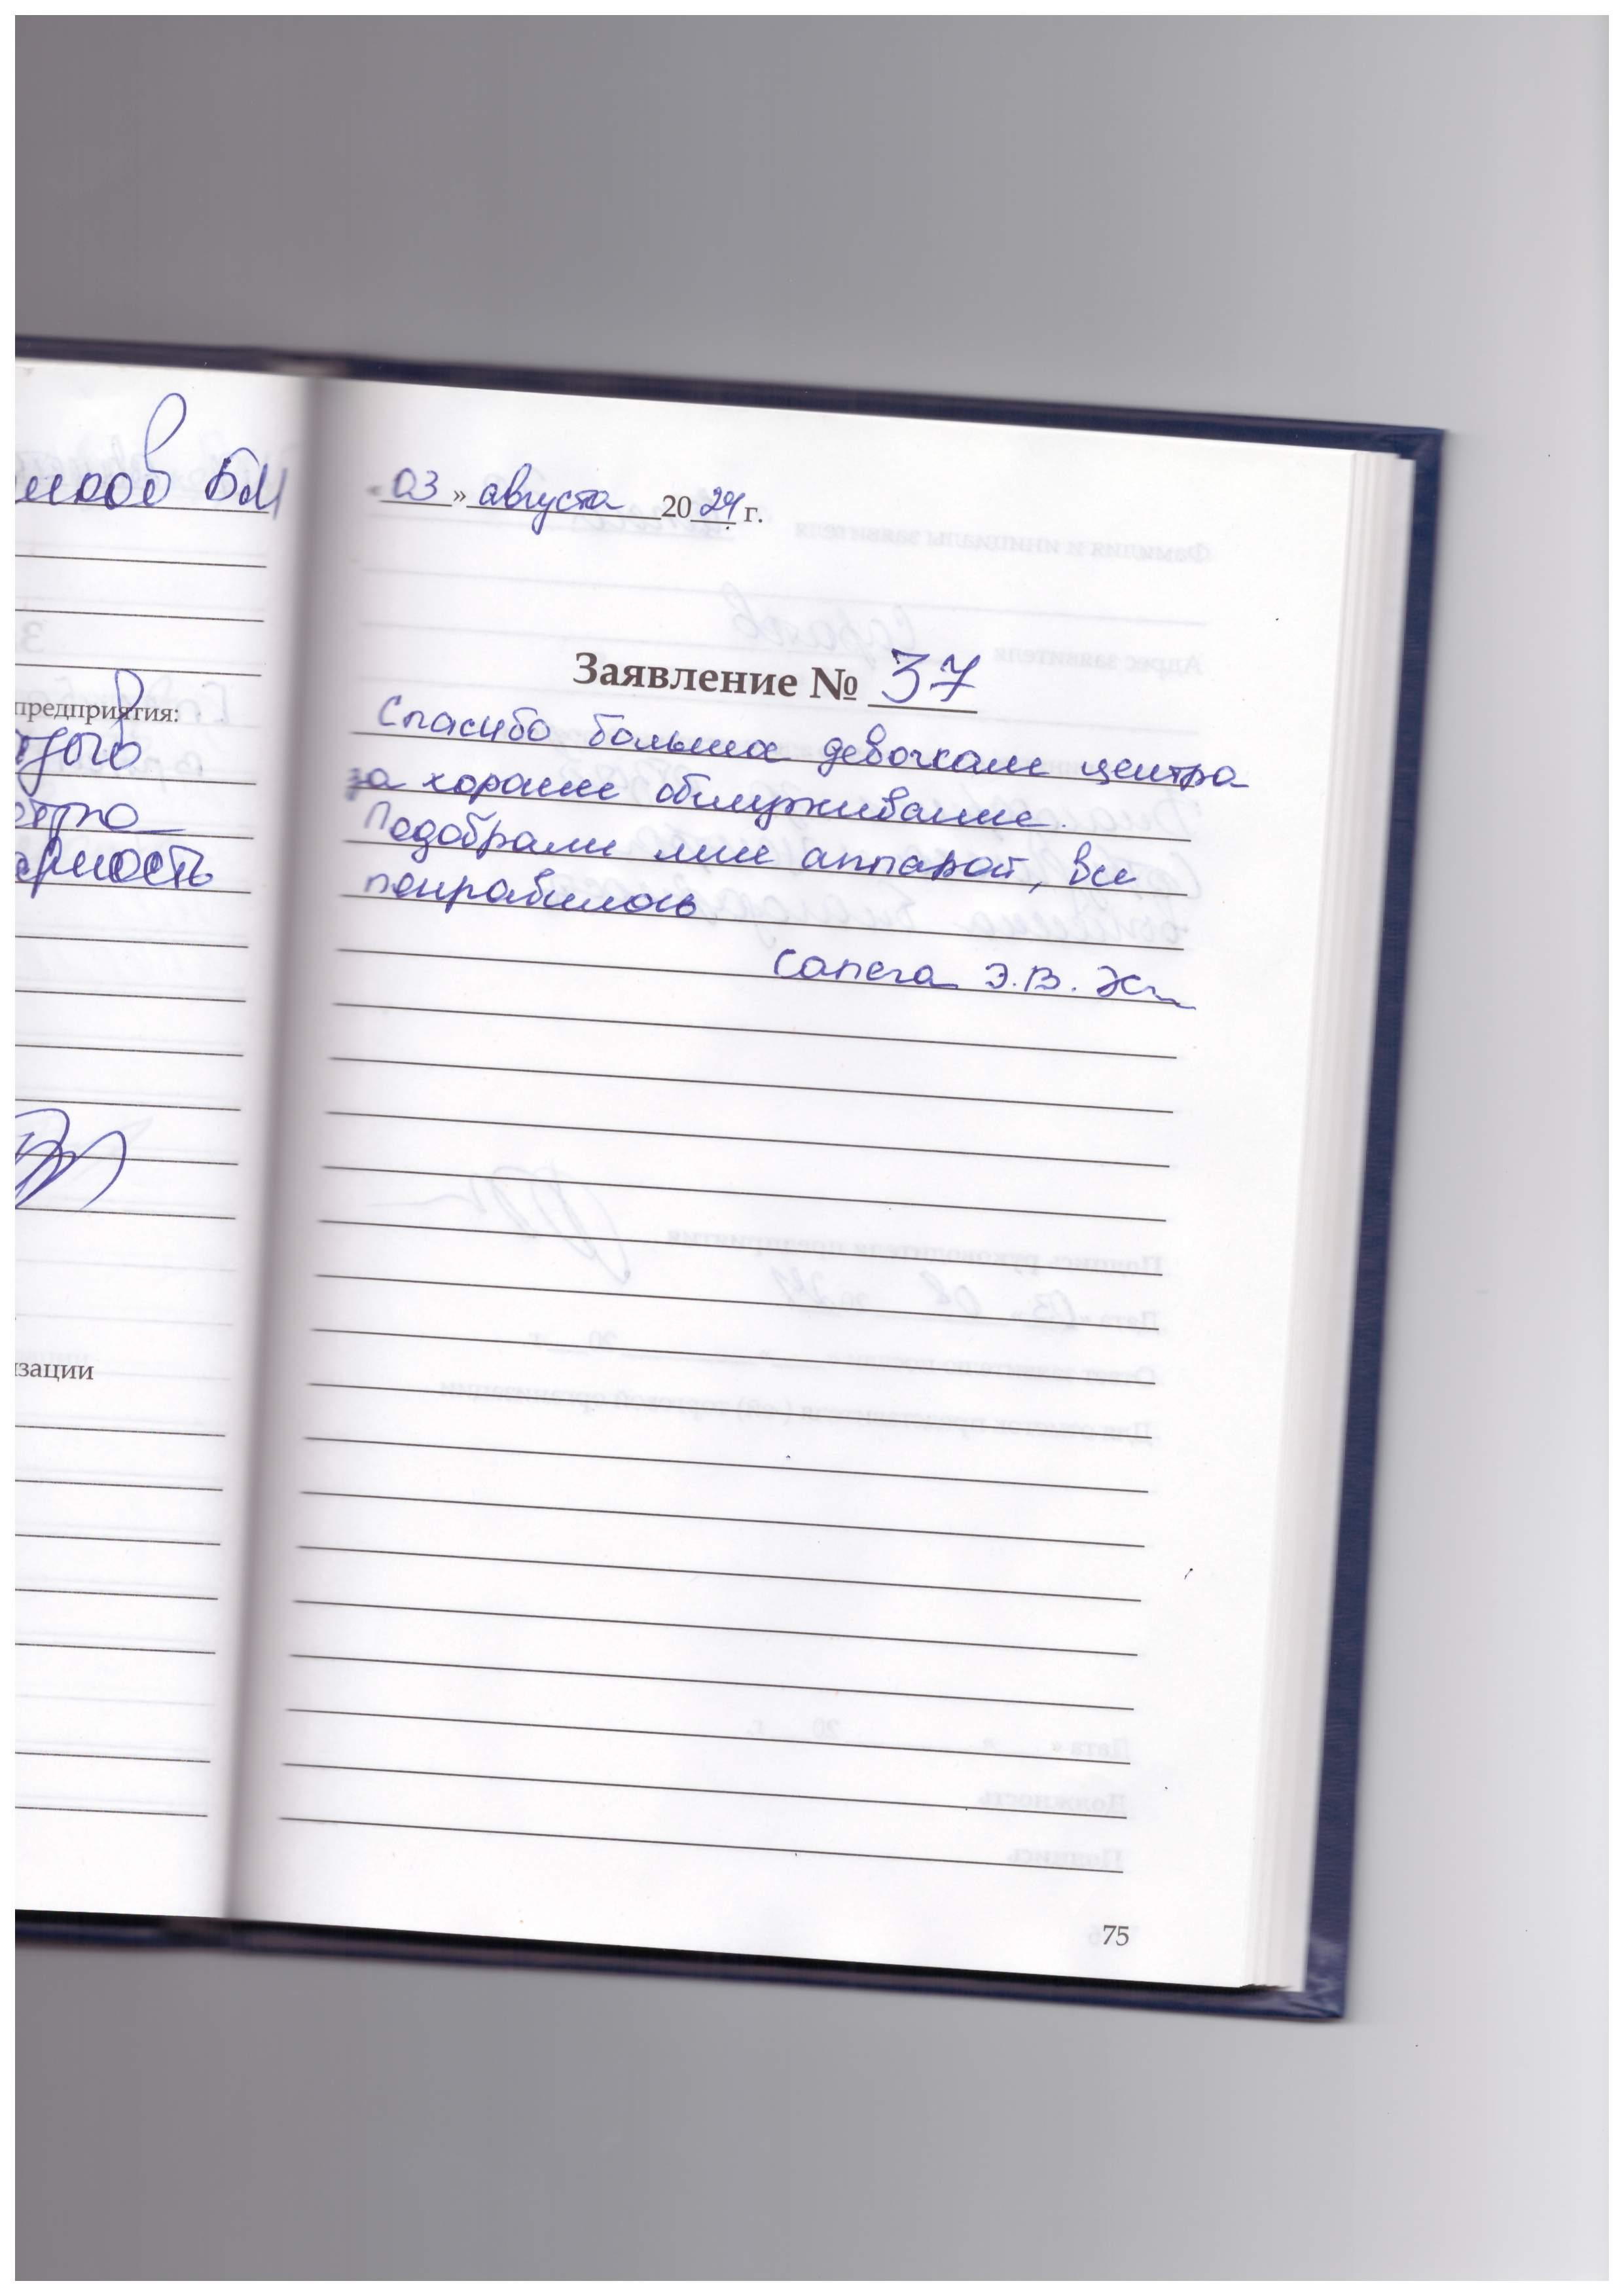 БМ
предприятия:
изации
«03» августа 2024 г.
Заявление № 37
Спасибо большое девочкам центра
за хорошее обслуживание.
Подобрали мне аппарат, все
понравилось
Сапега Э.В.
75